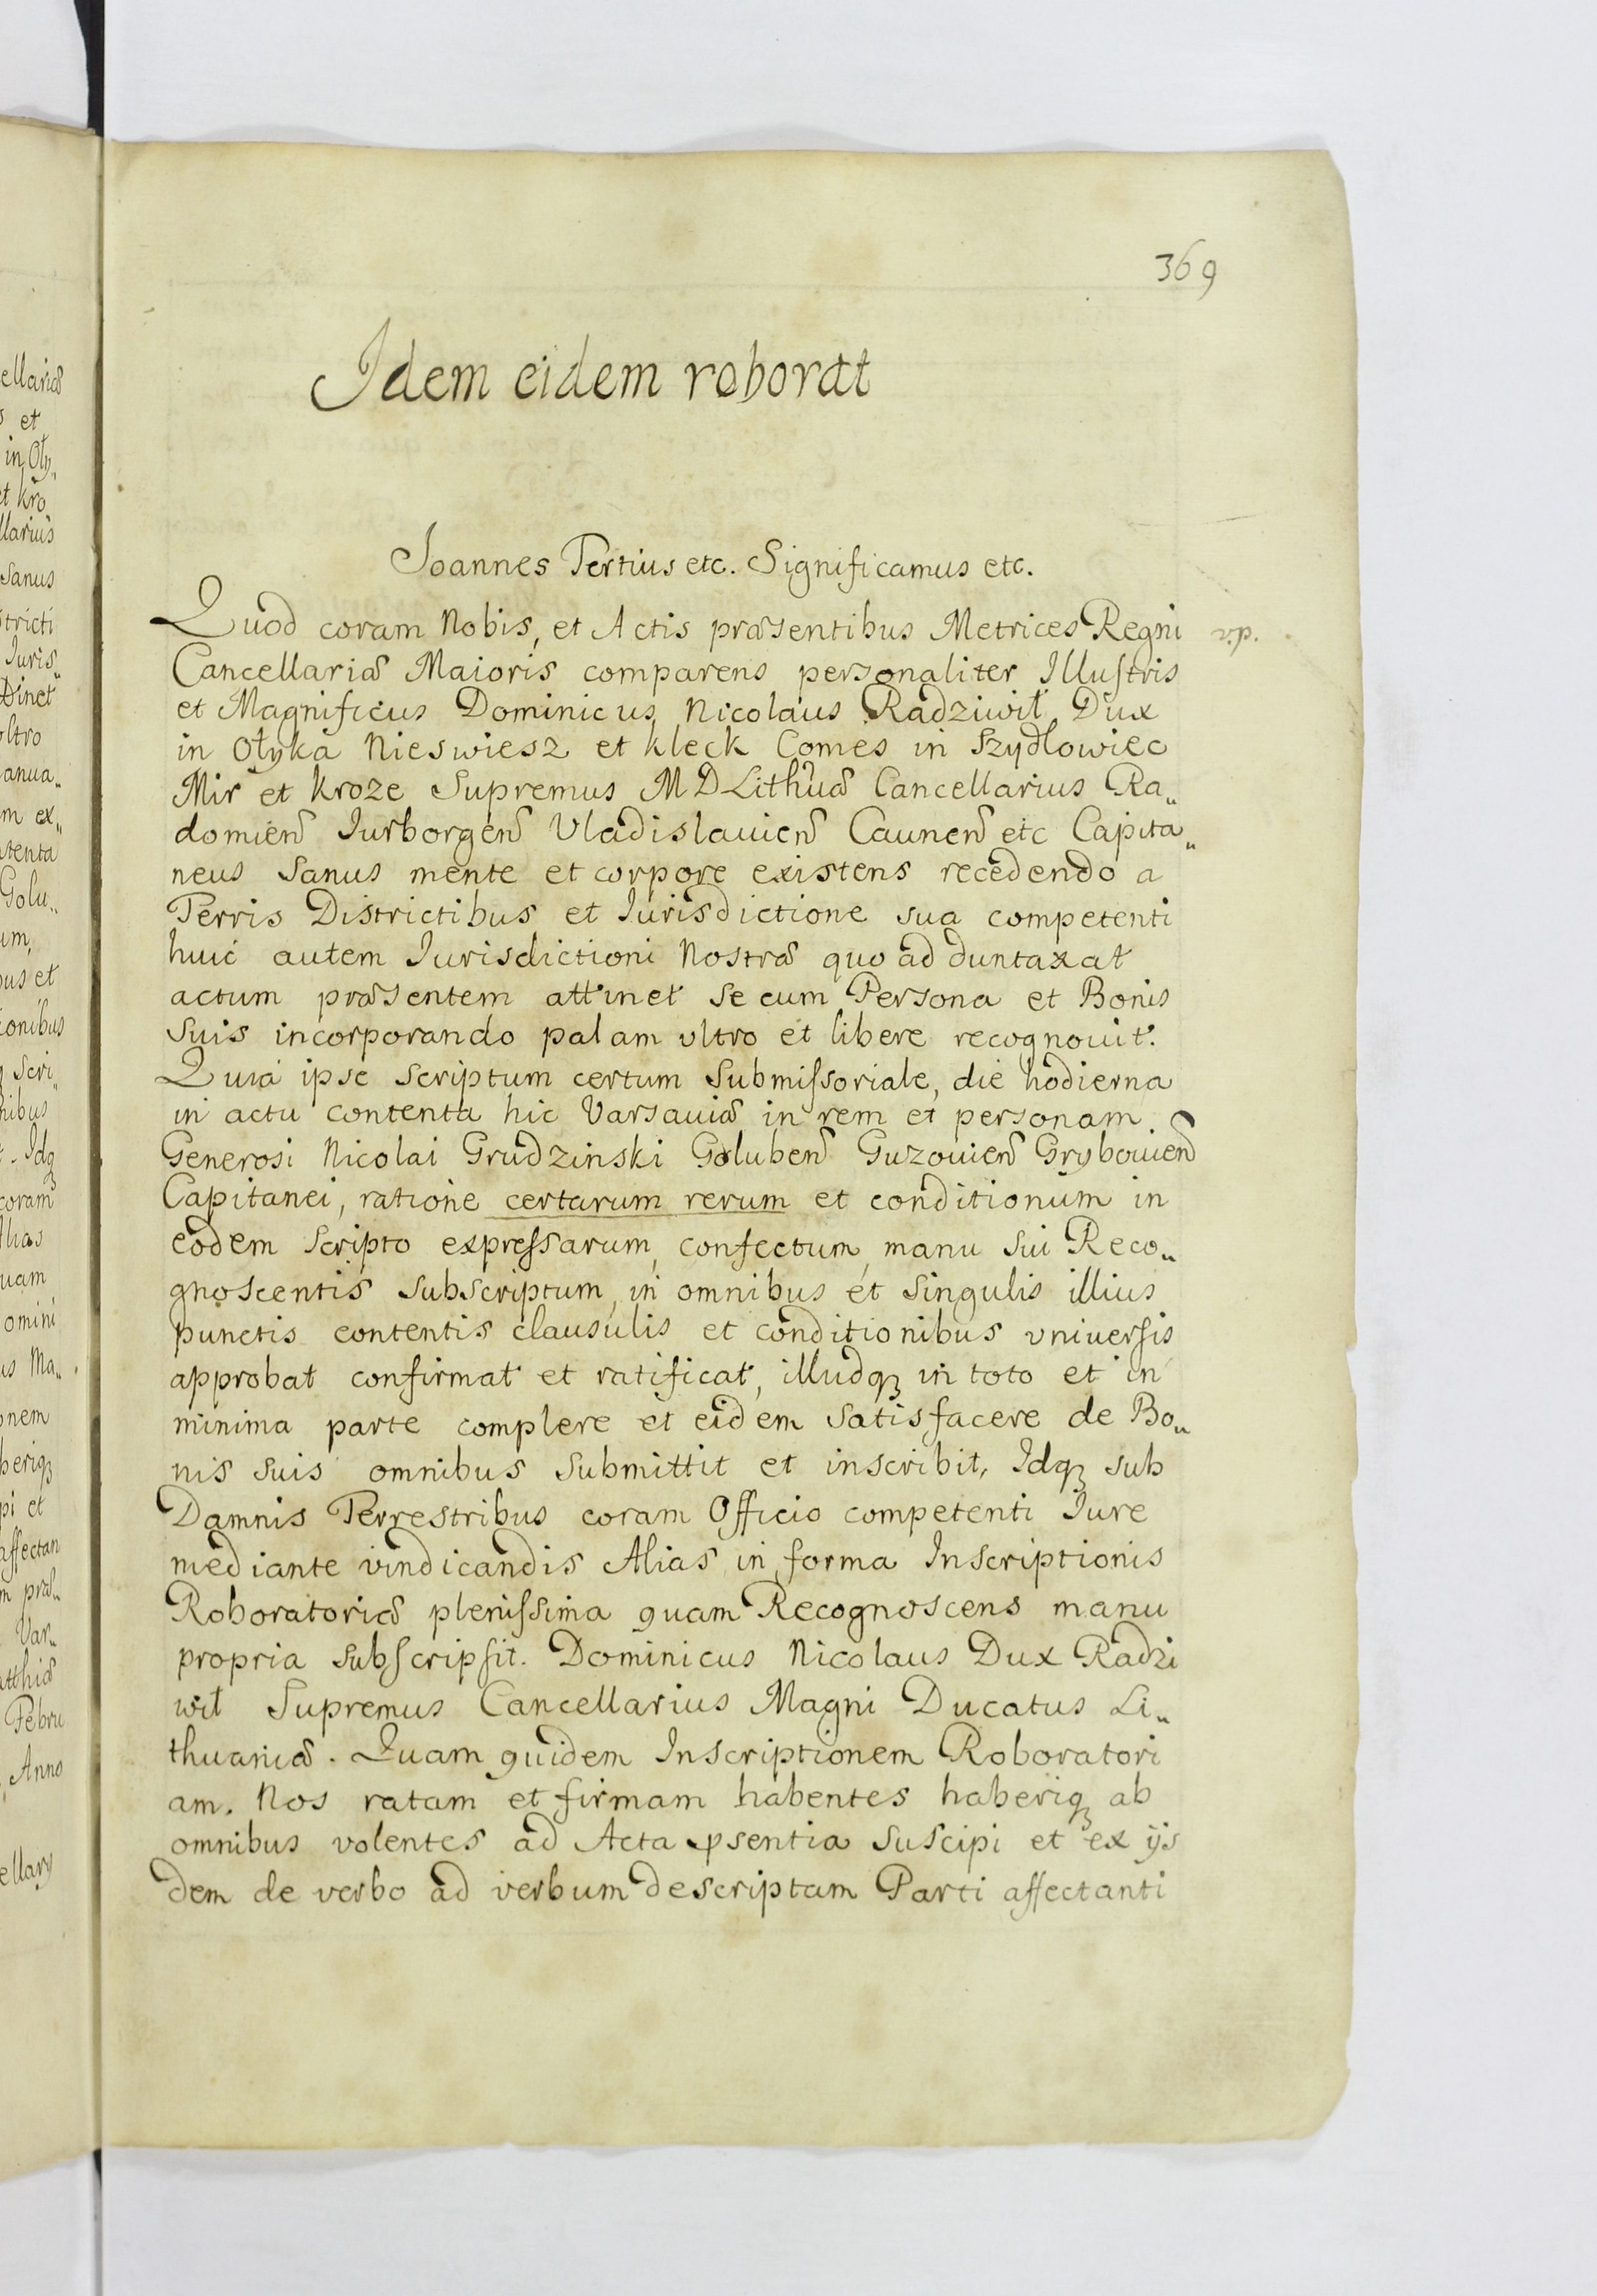 369
Idem eidem roborat
Joannes Tertius etc. Significamus etc.
Quod coram Nobis, et Actis præsentibus Metrices Regni v.p.
Cancellariæ Maioris comparens personaliter Illustris
et Magnificus Dominicus Nicolaus Radziwił Dux
in Ołyka Nieswiesz et Kleck Comes in Szydłowiec
Mir et Kroze Supremus M D Lithuæ Cancellarius Ra„
domien̄ Iurborgen̄ Vladislauien̄ Caunen̄ etc Capita„
neus Sanus mente et corpore existens recedendo a
Terris Districtibus et Iurisdictione sua competenti
huic autem Iurisdictioni Nostræ quo ad duntaxat
actum præsentem attinet se cum Persona et Bonis
Suis incorporando palam vltro et libere recognouit.
Quia ipse Scriptum certum Submissoriale, die hodierna
in actu contenta hic Varsauiæ in rem et personam
Generosi Nicolai Grudzinski Goluben̄ Guzouien̄ Grybouien̄
Capitanei, ratione certarum rerum et conditionum in
eodem Scripto expressarum, confectum, manu Sui Reco„
gnoscentis Subscriptum, in omnibus et Singulis illius
punctis contentis clausulis et conditionibus vniuersis
approbat confirmat et ratificat, illudqꝫ in toto et in
minima parte complere et eidem Satisfacere de Bo„
nis Suis omnibus Submittit et inscribit, Idqꝫ sub
Damnis Terrestribus coram Officio competenti Iure
mediante vindicandis Alias in forma Inscriptionis
Roboratoriæ plenissima quam Recognoscens manu
propria Subscripsit. Dominicus Nicolaus Dux Radzi
wił Supremus Cancellarius Magni Ducatus Li„
thuaniæ. Quam quidem Inscriptionem Roboratori
am. Nos ratam et firmam habentes haberiqꝫ ab
omnibus volentes ad Acta p̱sentia Suscipi et ex ijs
dem de verbo ad verbum descriptam Parti affectanti